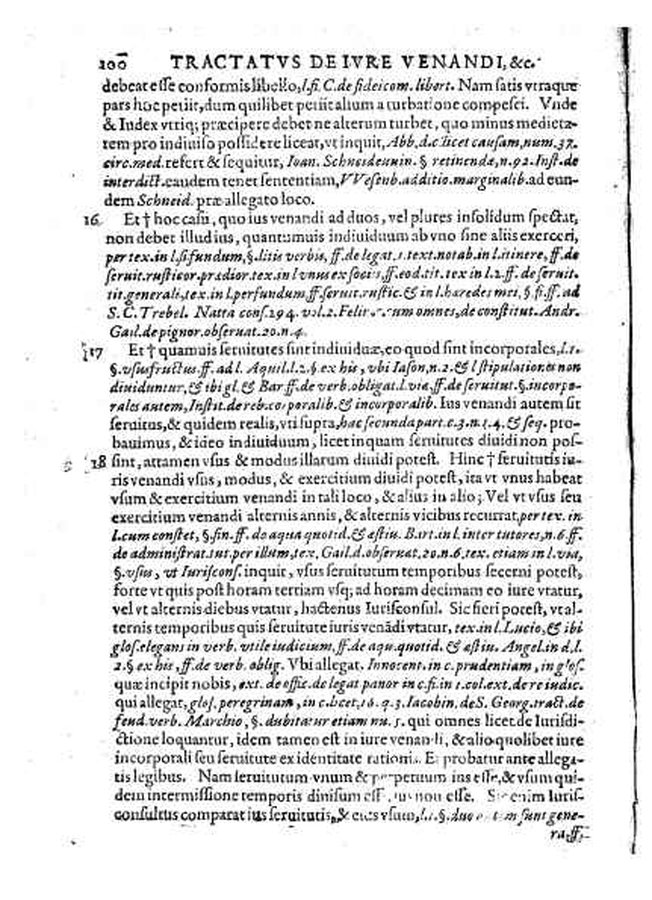 100 TRACTATVS DE IVRE VENANDI, &c.
debeat esse conformis libello, l.fi. C. de fideicom. libert. Nam satis vtraque
pars hoc petiit, dum quilibet petiit alium a turbatione compesci. Vnde
& Iudex vtriq; præcipere debet ne alterum turbet, quo minus medieta-
tem pro indiuiso possidere liceat, vt inquit, Abb. d. c. licet causam, num. 37.
circ. med. refert & sequitur, Ioan. Schneideuuin. § retinendæ, n. 92. Inst. de
interdict. eandem tenet sententiam, VVesenb. additio. marginalib. ad eun-
dem Schneid. præallegato loco.
16. Et † hoc casu, quo ius venandi ad duos, vel plures insolidum spectat,
non debet illud ius, quantumuis indiuiduum ab vno sine aliis exerceri,
per tex. in l. si fundum, §. litis verbis, ff. de legat. 1. text. notab. in l. itinere, ff. de
seruit. rusticor. prædior. tex. in l vnus ex sociis, ff. eod. tit. tex in l. 2. ff. de seruit.
tit. generali, tex. in l. per fundum, ff. seruit. rustic. & in l. hæredes mei, §. fi. ff. ad
S. C. Trebel. Natta cons. 294. vol. 2. Felin. cum omnes, de constitut. Andr.
Gail. de pignor. obseruat. 20. n. 4.
17 Et † quamuis seruitutes sint indiuiduæ, eo quod sint incorporales, l. 1.
§. vsusfructus. ff. ad l. Aquil. l. 2. § ex his, vbi Iason, n. 2. & l stipulationes non
diuiduntur, & ibi gl. & Bar ff. de verb. obligat. l. via, ff. de seruitut. §. incorpo-
rales autem, Instit. de reb. corporalib. & incorporalib. Ius venandi autem sit
seruitus, & quidem realis, vti supra, hac secunda part. c. 3. n. 1. 4. & seq. pro-
bauimus, & ideo indiuiduum, licet inquam seruitutes diuidi non pos-
18 sint, attamen vsus & modus illarum diuidi potest. Hinc † seruitutis iu-
ris venandi vsus, modus, & exercitium diuidi potest, ita vt vnus habeat
vsum & exercitium venandi in tali loco, & alius in alio; Vel vt vsus seu
exercitium venandi alternis annis, & alternis vicibus recurrat, per tex. in
l. cum constet, §. fin. ff. de aqua quotid. & æstiu. Bart. in l. inter tutores, n. 6. ff.
de administrat. tut. per illum, tex. Gail. d. obseruat. 20. n. 6. tex. etiam in l. via,
§. vsus, vt Iurisconf. inquit, vsus seruitutum temporibus secerni potest,
forte vt quis post horam tertiam vsq; ad horam decimam eo iure vtatur,
vel vt alternis diebus vtatur, hactenus Iurisconsul. Sic fieri potest, vt al-
ternis temporibus quis seruitute iuris venãdi vtatur, tex. in l. Lucio, & ibi
glos. elegans in verb. vtile iudicium, ff. de aqu. quotid. & æstiu. Angel. in d. l.
2. § ex his, ff. de verb. oblig. Vbi allegat. Innocent. in c. prudentiam, in glos.
quæ incipit nobis, ext. de offic. de legat panor in c. fi. in 1. col. ext. de re iudic.
qui allegat, glos. peregrinam, in c. licet, 16. q. 3. Iacobin. de S. Georg. tract. de
feud. verb. Marchio, §. dubitatur etiam nu. 5. qui omnes licet de Iurisdi-
ctione loquantur, idem tamen est in iure venandi, & alio quolibet iure
incorporali seu seruitute ex identitate rationis. Et probatur ante allega-
tis legibus. Nam seruitutum vnum & perpetuum ius esse, & vsum qui-
dem intermissione temporis diuisum esse, ius non esse. Sic enim Iuris-
consultus comparat ius seruitutis, & eius vsum, l. 1. §. duo autem sunt gene-
ra, ff.